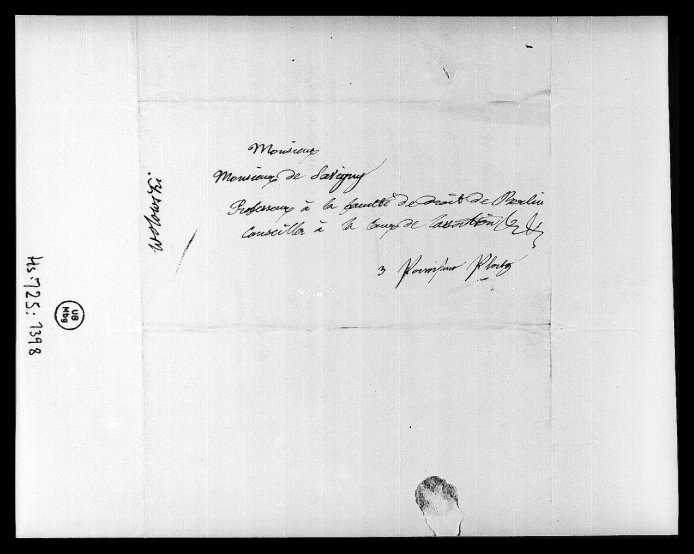 Monsieur
Monsieur de Savigny
Professeur à la faculté de droit de Berlin
Conseiller à la cour de Cassation
3 Pariser Platz
Hs. 725: 1398
UB
Mbg